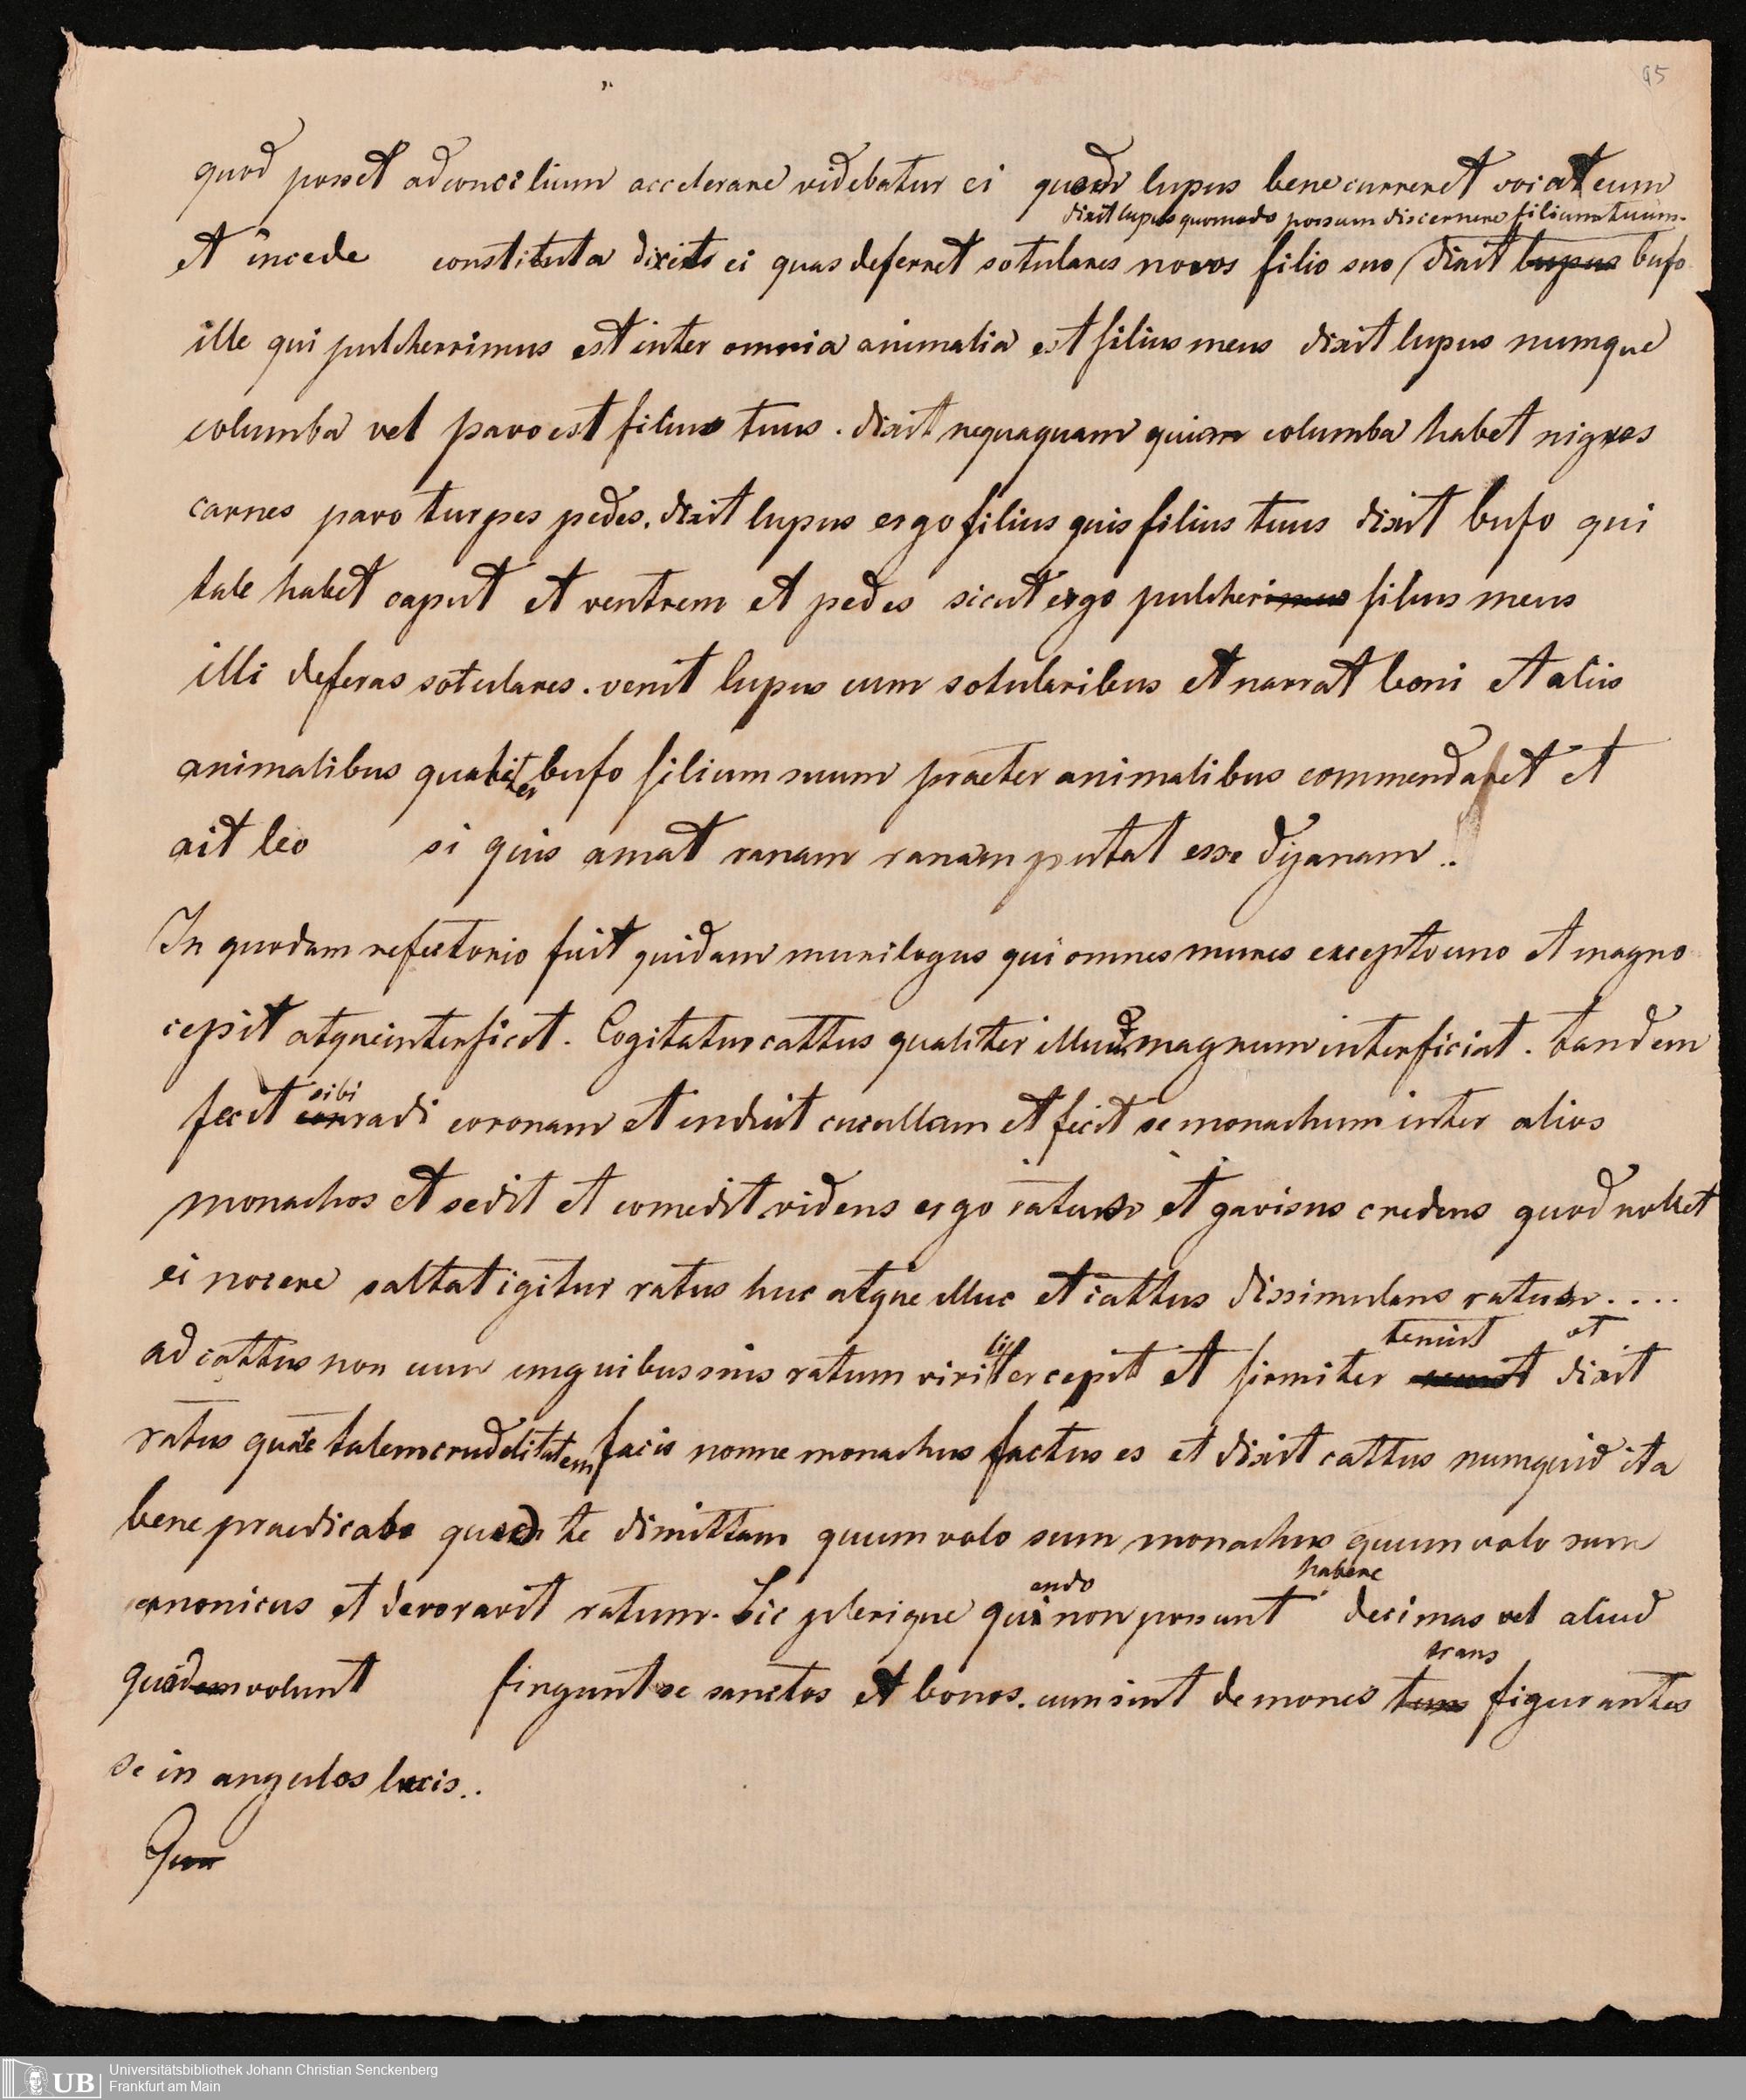 95
quod posset ad concilium accelerare videbatur ei quod lupus bene curreret vocat eum
dixit lupus quomodo possum discernere filium tuum.
et incede constituta dicens ei quas deferret sotulares novos filio suo / dixit lupus bufo
ille qui pulcherrimus est inter omnia animalia est filius meus dixit lupus numque
columba vel pavo est filius tuus. dixit nequaquam quia columba habet nigras
carnes pavo turpes pedes. dixit lupus ergo filius quis filius tuus dixit bufo qui
tale habet caput et ventrem et pedes sicut ergo pulcherimus filius meus
illi deferas sotulares. venit lupus cum sotularibus et narrat leoni et aliis
animalibus qualiter bufo filium suum praeter animalibus commendaret et
ait leo si quis amat ranam ranam putat esse dyanam..
In quodam refectorio fuit quidam murilogus qui omnes mures excepto uno et magno
cepit atque interficit. Cogitatur cattus qualiter illum magnum interficiat. tandem
sibi
fecit con radi coronam et induit cucullam et fecit se monachum inter alios
monachos et sedit et comedit videns ergo ratus et gavisus credens quod nollet
ei nocere saltat igitur ratus huc atque illuc et cattus dissimulans ratus....
tenuit et
ad cattus non cum unguibus suis ratum viriliter cepit et firmiter dixit
ratus quare talem crudelitatem facis nonne monachus factus es et dixit cattus numquid ita
bene praedicabo quod te dimittam quum volo sum monachus quum volo sum
ando habere
canonicus et devoravit ratum. Sic plerique qui non possunt decimas vel aliud
trans
quidem volunt fingunt se sanctos et bonos. cum sint demones tuns figurantes
se in angulos lucis..
Qua
UB Universitätsbibliothek Johann Christian Senckenberg
Frankfurt am Main